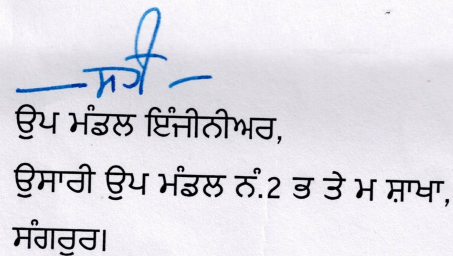 — ਸਹੀ —
ਉਪ ਮੰਡਲ ਇੰਜੀਨੀਅਰ,
ਉਸਾਰੀ ਉਪ ਮੰਡਲ ਨੰ.2 ਭ ਤੇ ਮ ਸ਼ਾਖਾ,
ਸੰਗਰੂਰ।